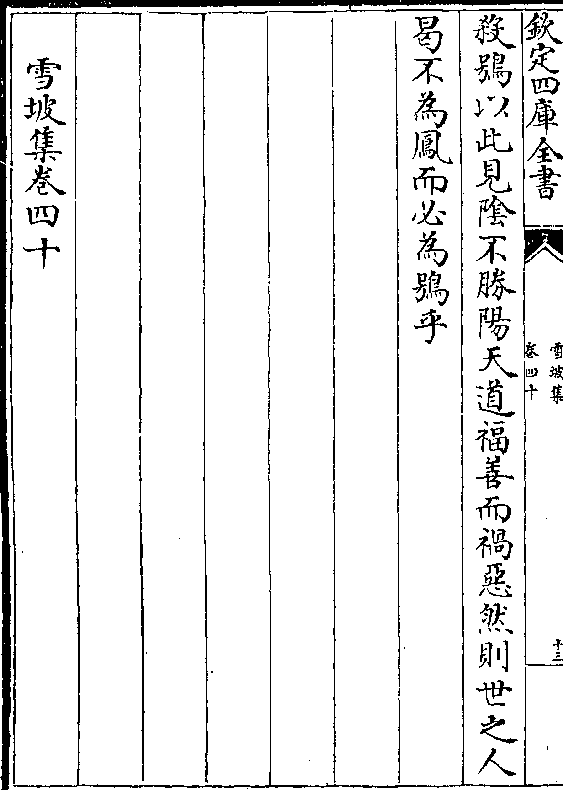 欽定四庫全書
雪坡集
卷四十
十三
殺鴞以此見陰不勝陽天道福善而禍惡然則世之人
曷不為鳳而必為鴞乎
雪坡集卷四十